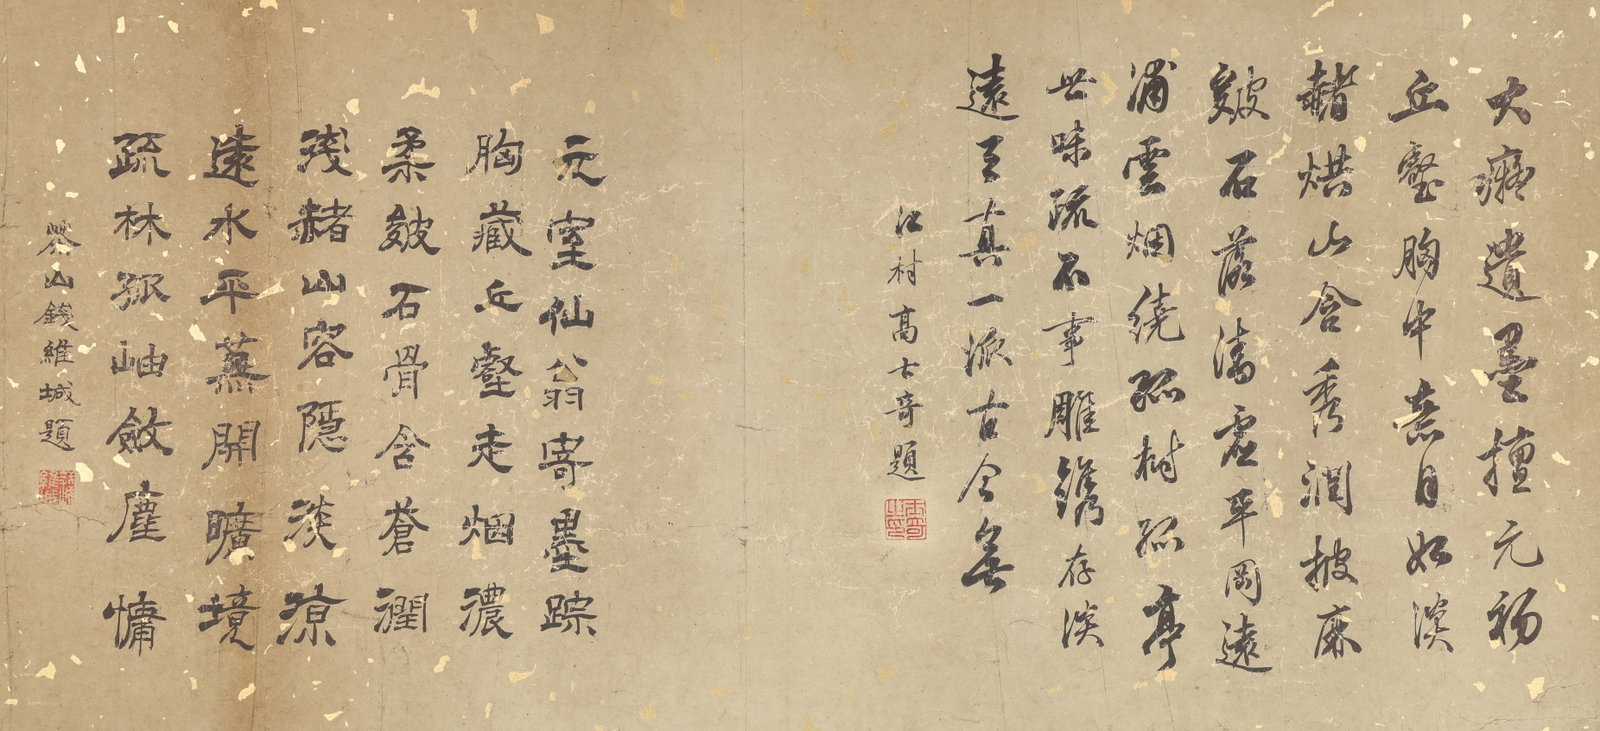 大癡遺墨擅元初
丘壑胸中意自如淡
赭烘山含秀潤披麻
皴石落清虛平岡遠
浦雲烟繞孤樹孤亭
世味疏不事雕鐫存淡
遠
真一派古今無
江村高士奇題
元室仙翁寄墨踪
胸藏丘壑走烟濃
柔皴石骨含蒼潤
淺赭山容隱淡涼
遠水平蕪開曠境
疏林孤岫斂塵慵
茶山錢維城題